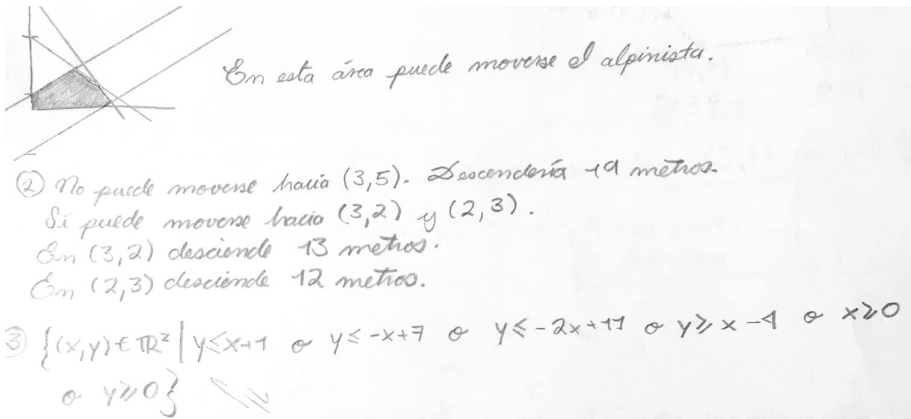 En esta área puede moverse el alpinista.
② No puede moverse hacia (3,5). Descendería 19 metros.
Sí puede moverse hacia (3,2) y (2,3).
En (3,2) desciende 13 metros.
En (2,3) desciende 12 metros.
③ {(x,y) ∈ ℝ² | y ≤ x+1 o y ≤ -x+7 o y ≤ -2x+11 o y ≥ x-4 o x ≥ 0
o y ≥ 0}